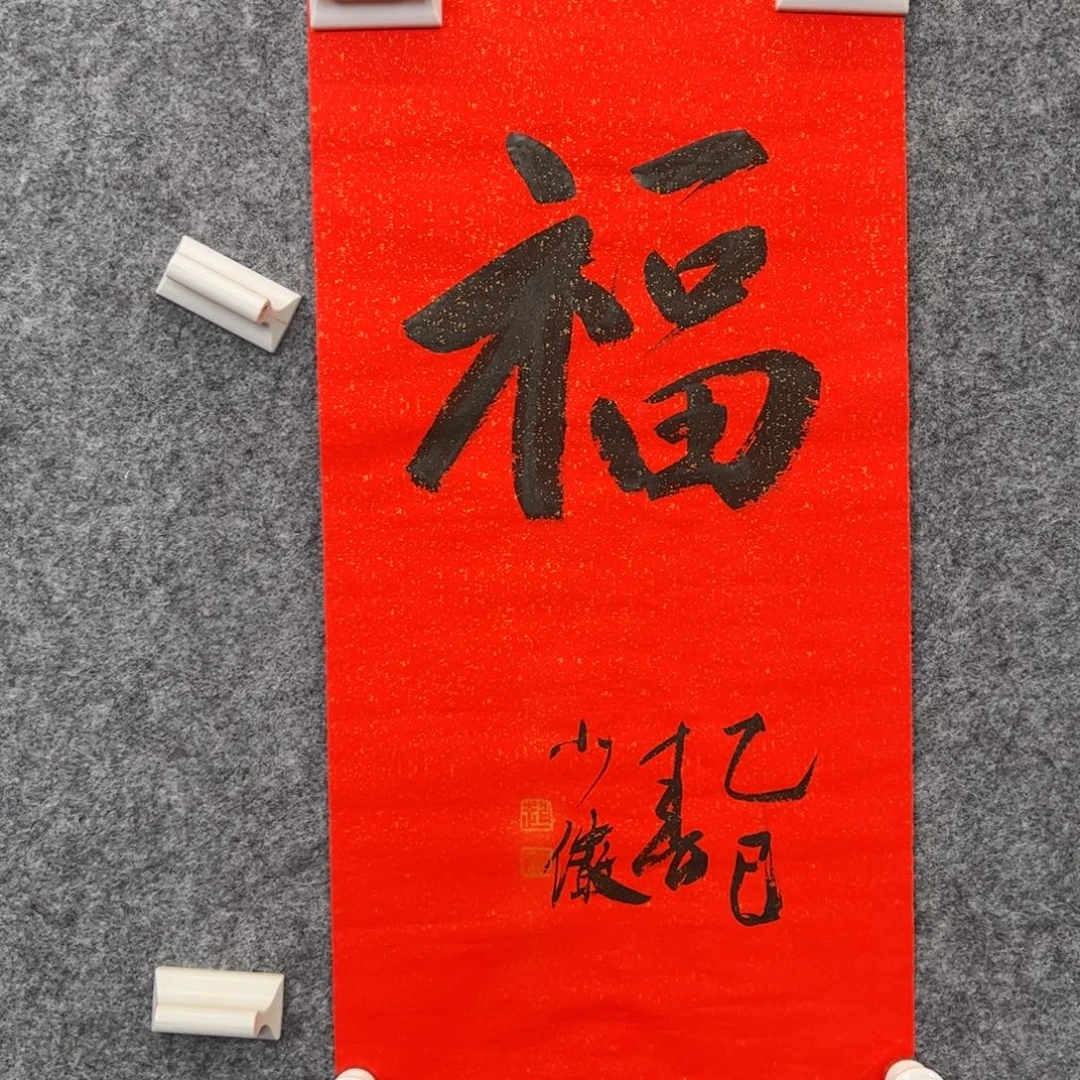 福
乙巳
春
少儆